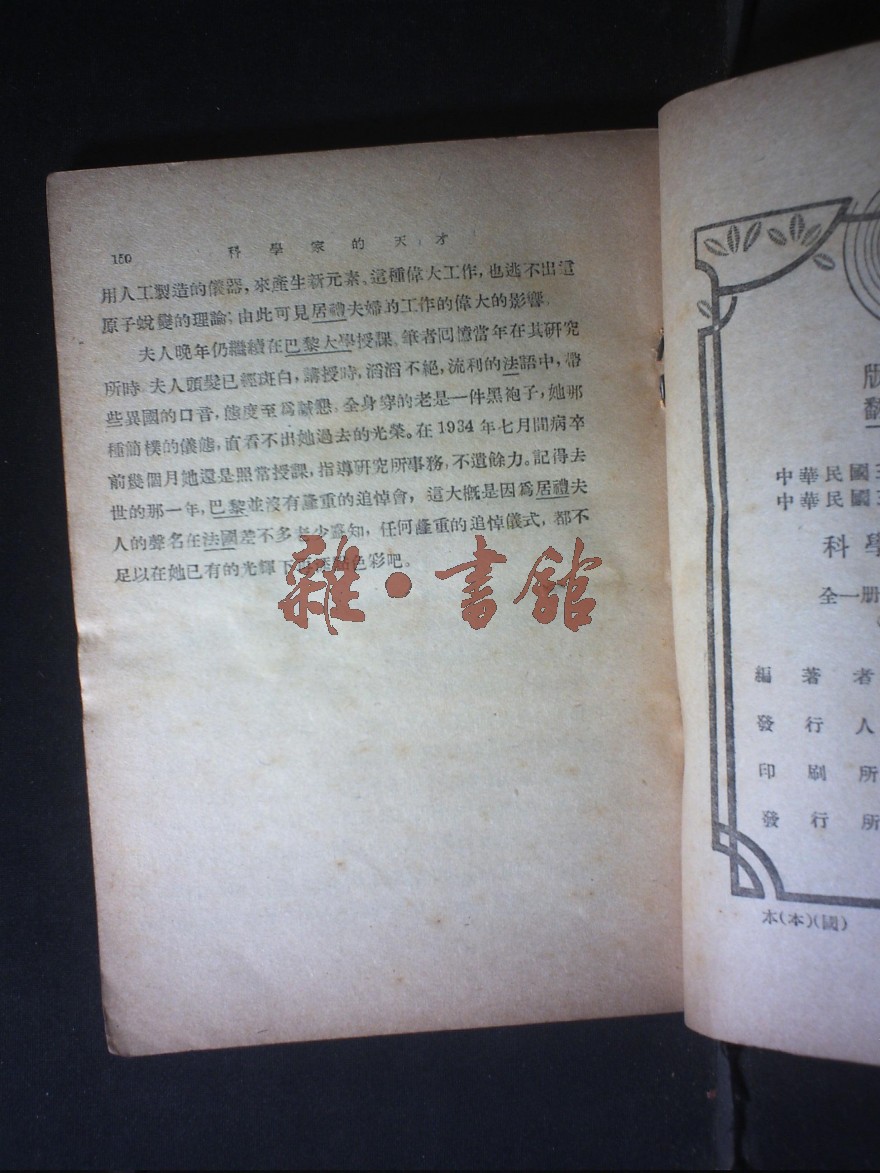 150 科學家的天才
用人工製造的儀器,來產生新元素、這種偉大工作,也逃不出這
原子蛻變的理論;由此可見居禮夫婦的工作的偉大的影響.
夫人晚年仍繼續在巴黎大學授課.筆者回憶當年在其研究
所時.夫人頭髮已經斑白,講授時,滔滔不絕,流利的法語中,帶
些異國的口音,態度至爲誠懇.全身穿的老是一件黑袍子,她那
種簡樸的儀態,直看不出她過去的光榮。在1934年七月間病卒
前幾個月她還是照常授課,指導研究所事務,不遺餘力。記得去
世的那一年,巴黎並沒有隆重的追悼會,這大概是因爲居禮夫
人的聲名在法國差不多老少皆知,任何隆重的追悼儀式,都不
足以在她已有的光輝下再添色彩吧。
雜·書館
版
翻
中華民國三
中華民國三
科學
全一册
編著者
發行人
印刷所
發行所
本(本)(國)